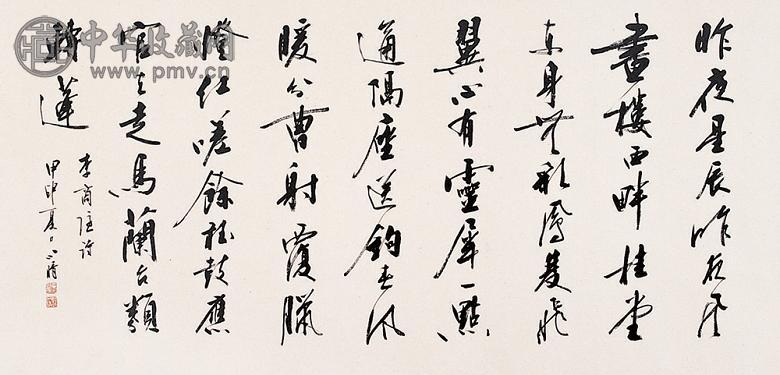 中华收藏网
www.pmv.cn
昨夜星辰昨夜風
畫樓西畔桂堂
東身無彩鳳雙飛
翼心有靈犀一點
通隔座送鉤春酒
暖分曹射覆臘
燈紅嗟餘聽鼓應
官去走馬蘭台類
轉蓬
李商隱詩
甲申夏日